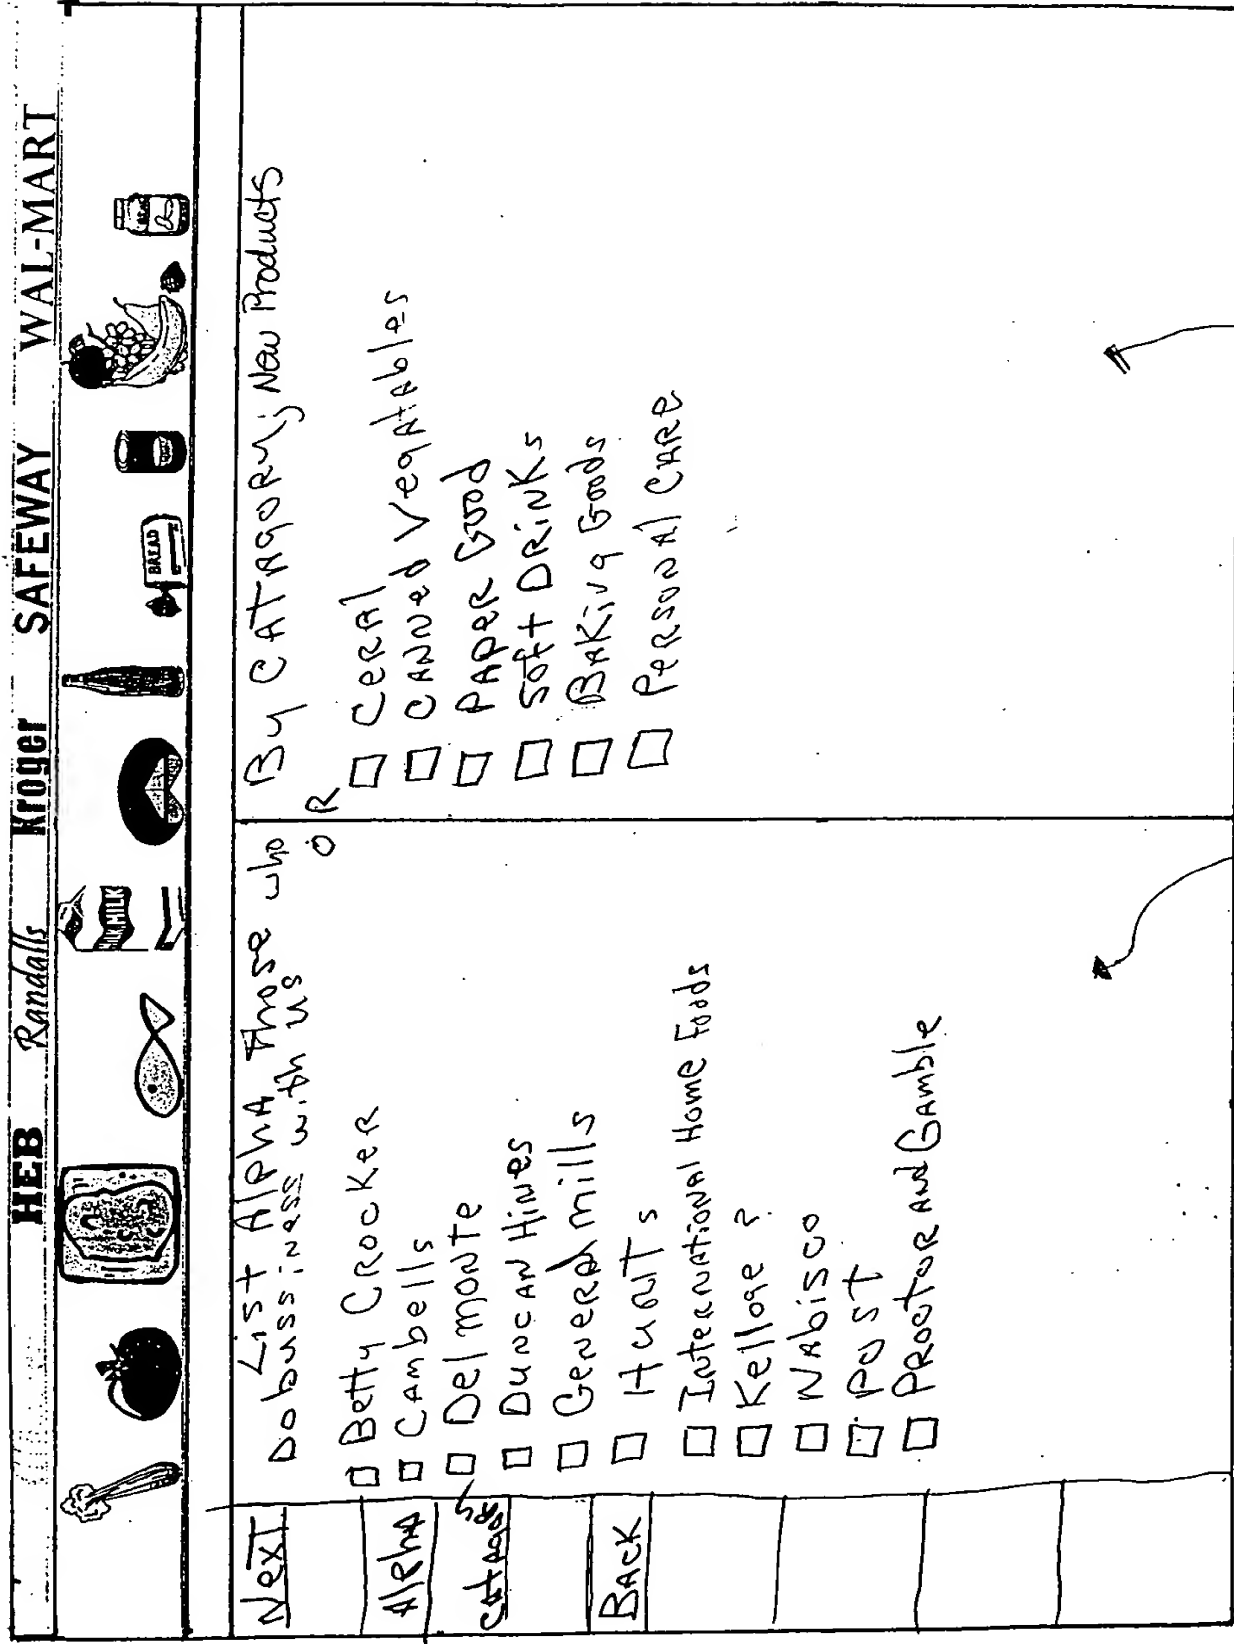 HEB Randalls Kroger SAFEWAY WAL-MART
MILK
BREAD
Next
Alpha
Catagory
Back
List Alpha those who
Do bussiness with us
OR
Betty Crocker
Cambells
Del monte
Duncan Hines
General mills
Hunts
International Home Foods
Kelloge ?
Nabisco
Post
Proctor and Gamble
By Catagory; New Products
Ceral
Canned Vegatables
Paper Good
Soft Drinks
Baking Goods
Personal Care